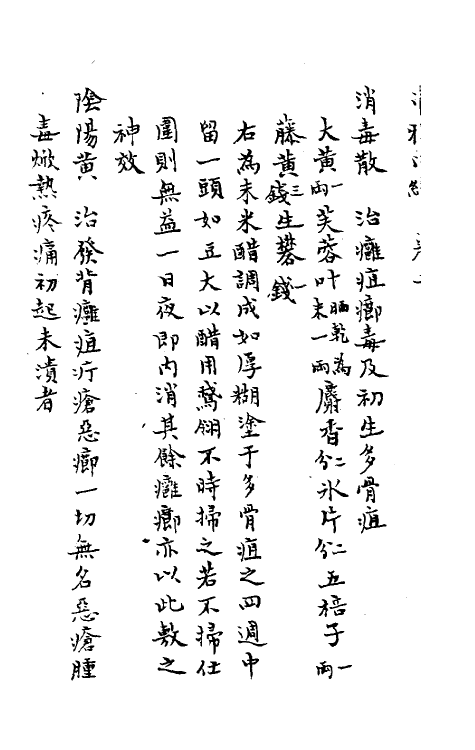 消毒散　治癰疽癤毒及初生多骨疽
大黃一兩芙蓉叶晒乾為末一兩麝香二分氷片二分五棓子一兩
藤黃三錢生礬一錢
右為末米醋調成如厚糊塗于多骨疽之四週中
留一頭如豆大以醋用鵞翎不時掃之若不掃仕
圍則無益一日夜即內消其餘癰癤亦以此敷之
神效
陰陽黃　治發背癰疽疔瘡惡癤一切無名惡瘡腫
毒焮熱疼痛初起未潰者